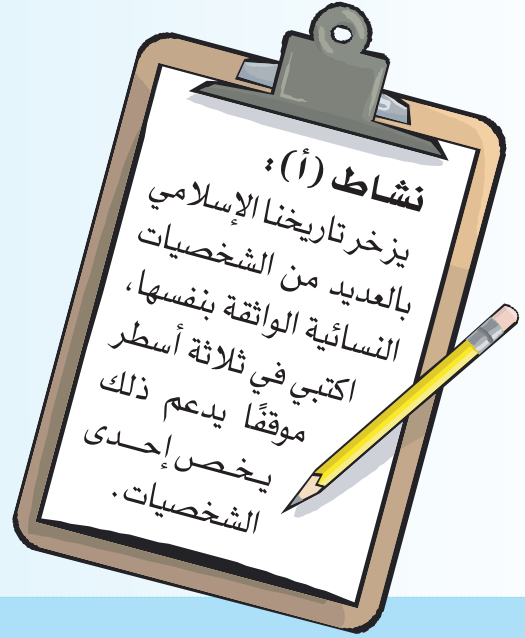 نشاط (أ) :
يزخر تاريخنا الإسلامي
بالعديد من الشخصيات
النسائية الواثقة بنفسها،
اكتبي في ثلاثة أسطر
موقفًا يدعم ذلك
يخص إحدى
الشخصيات.